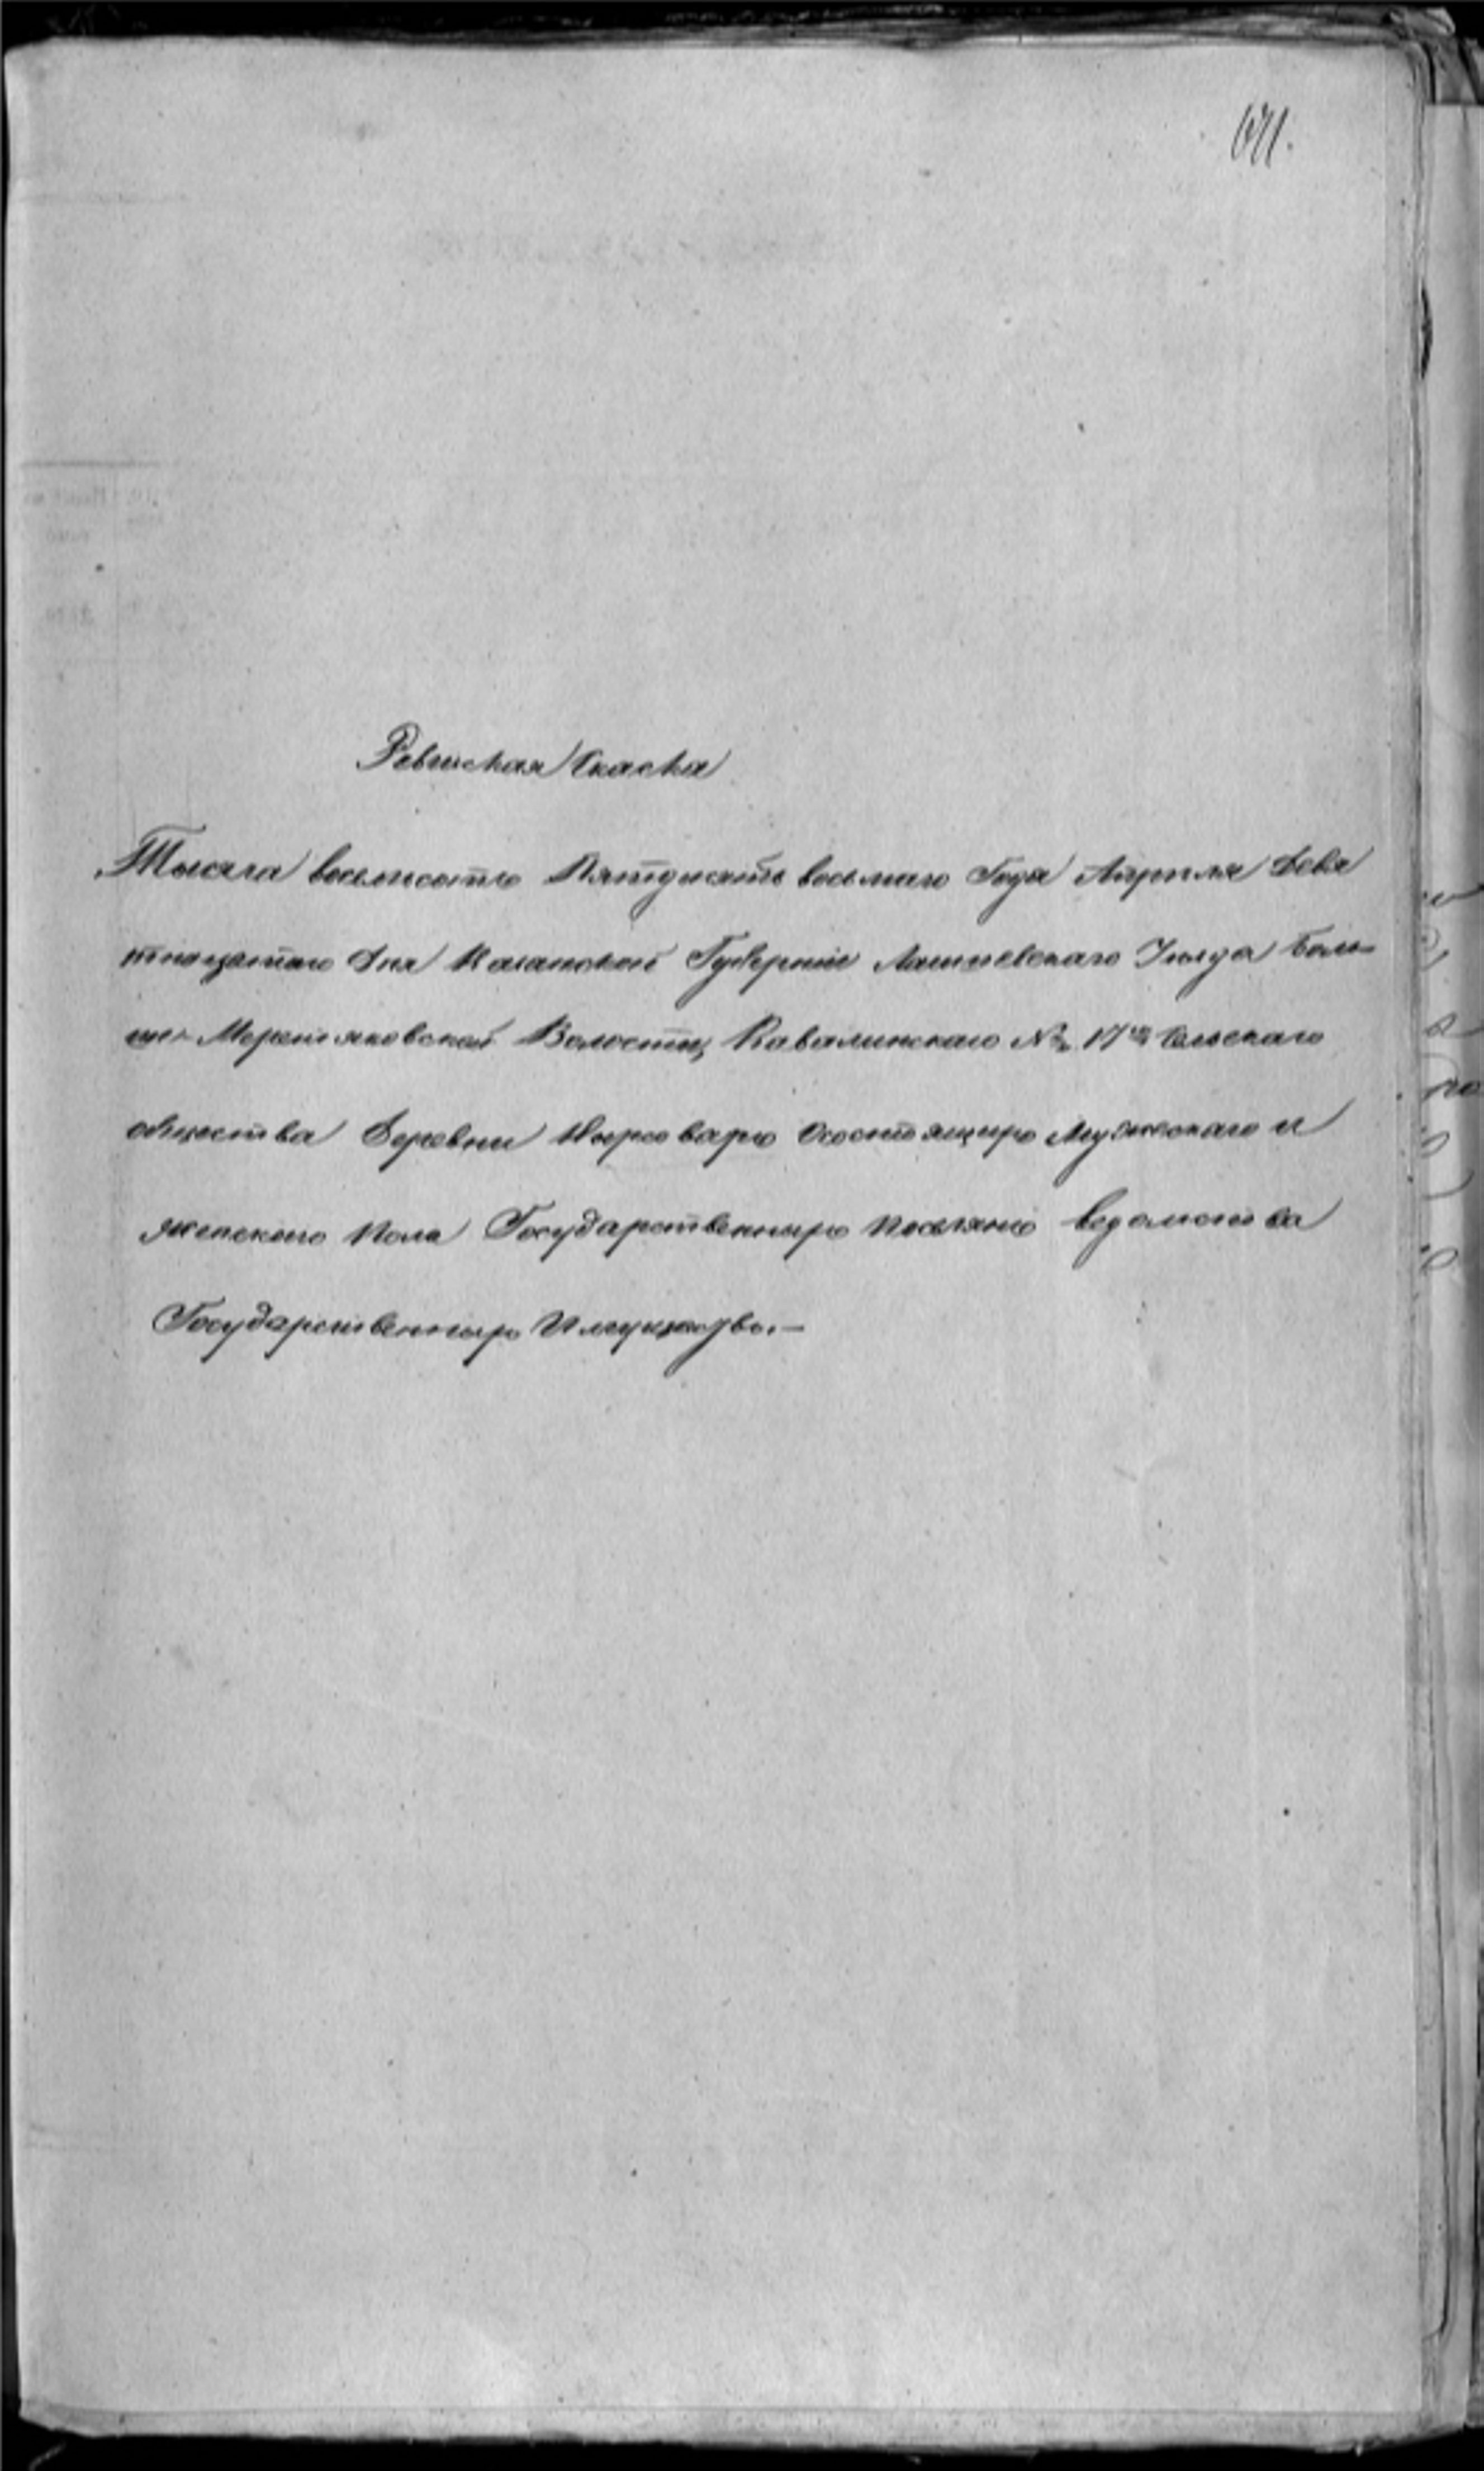 671.
Ревиская Скаска
Тысяча восемсотъ Пятдесятъ восьмаго Года Апреля Девя
тнацатаго Дня Казанской Губерніи Лаишевскаго Уезда Боль=
ше-Меретяковской Волости, Кавалинскаго № 17го Сельскаго
общества Деревни Нырсоваръ Осостоящихъ Мужескаго и
женскаго Пола Государственныхъ поселянъ ведомства
Государственныхъ Имуществъ.—